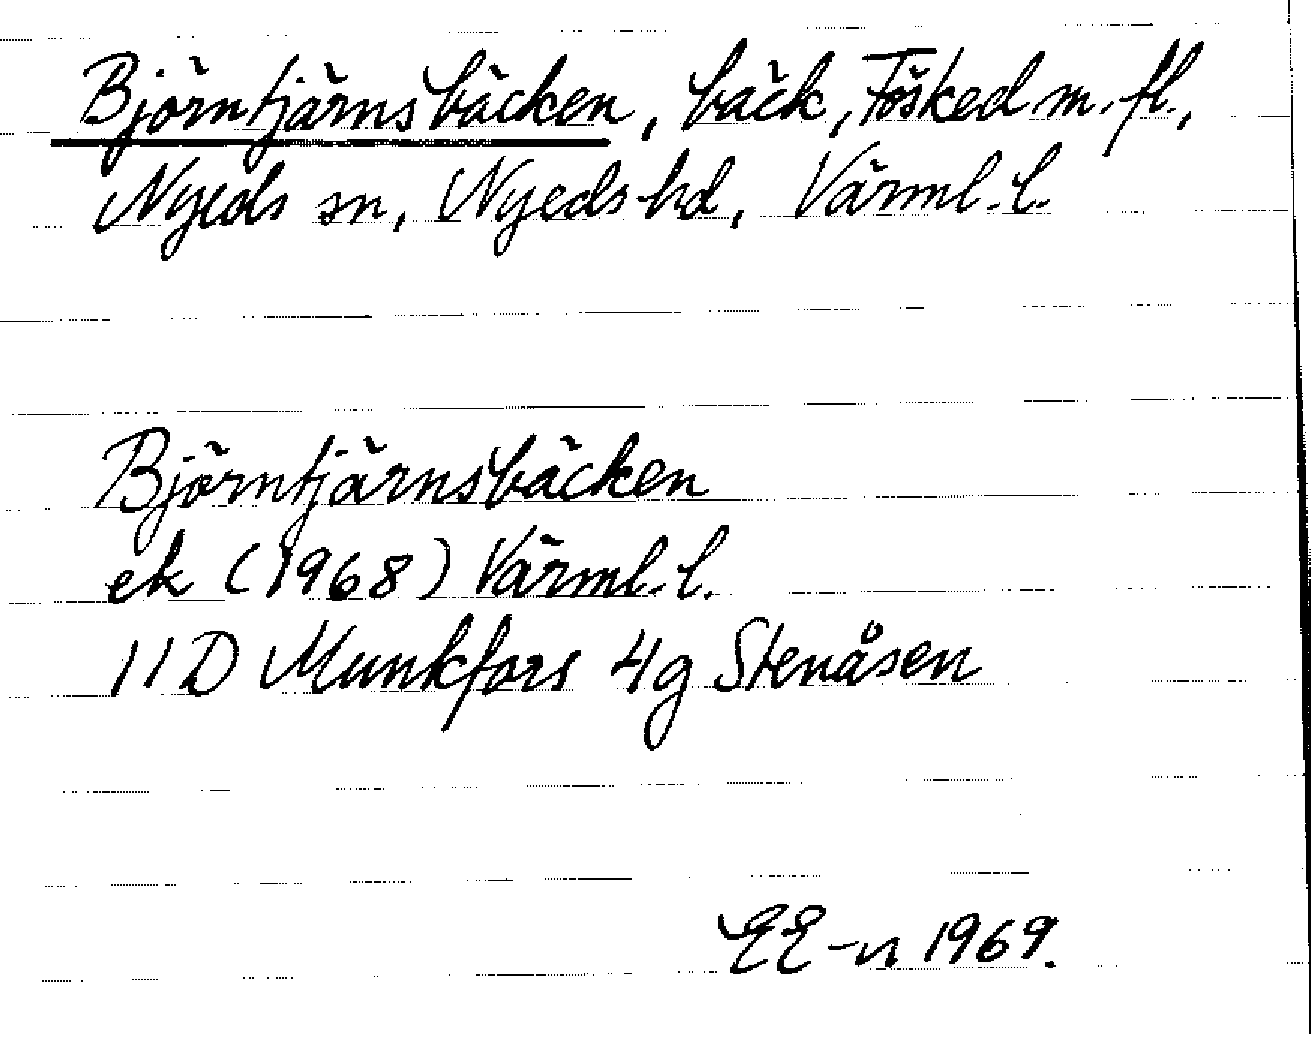 Björntjärnsbäcken, bäck, Fösked m. fl.,
Nyeds sn, Nyeds hd, Värml. l.
Björntjärnsbäcken
ek (1968) Värml. l.
11D Munkfors 4g Stenåsen
EE-n 1969.